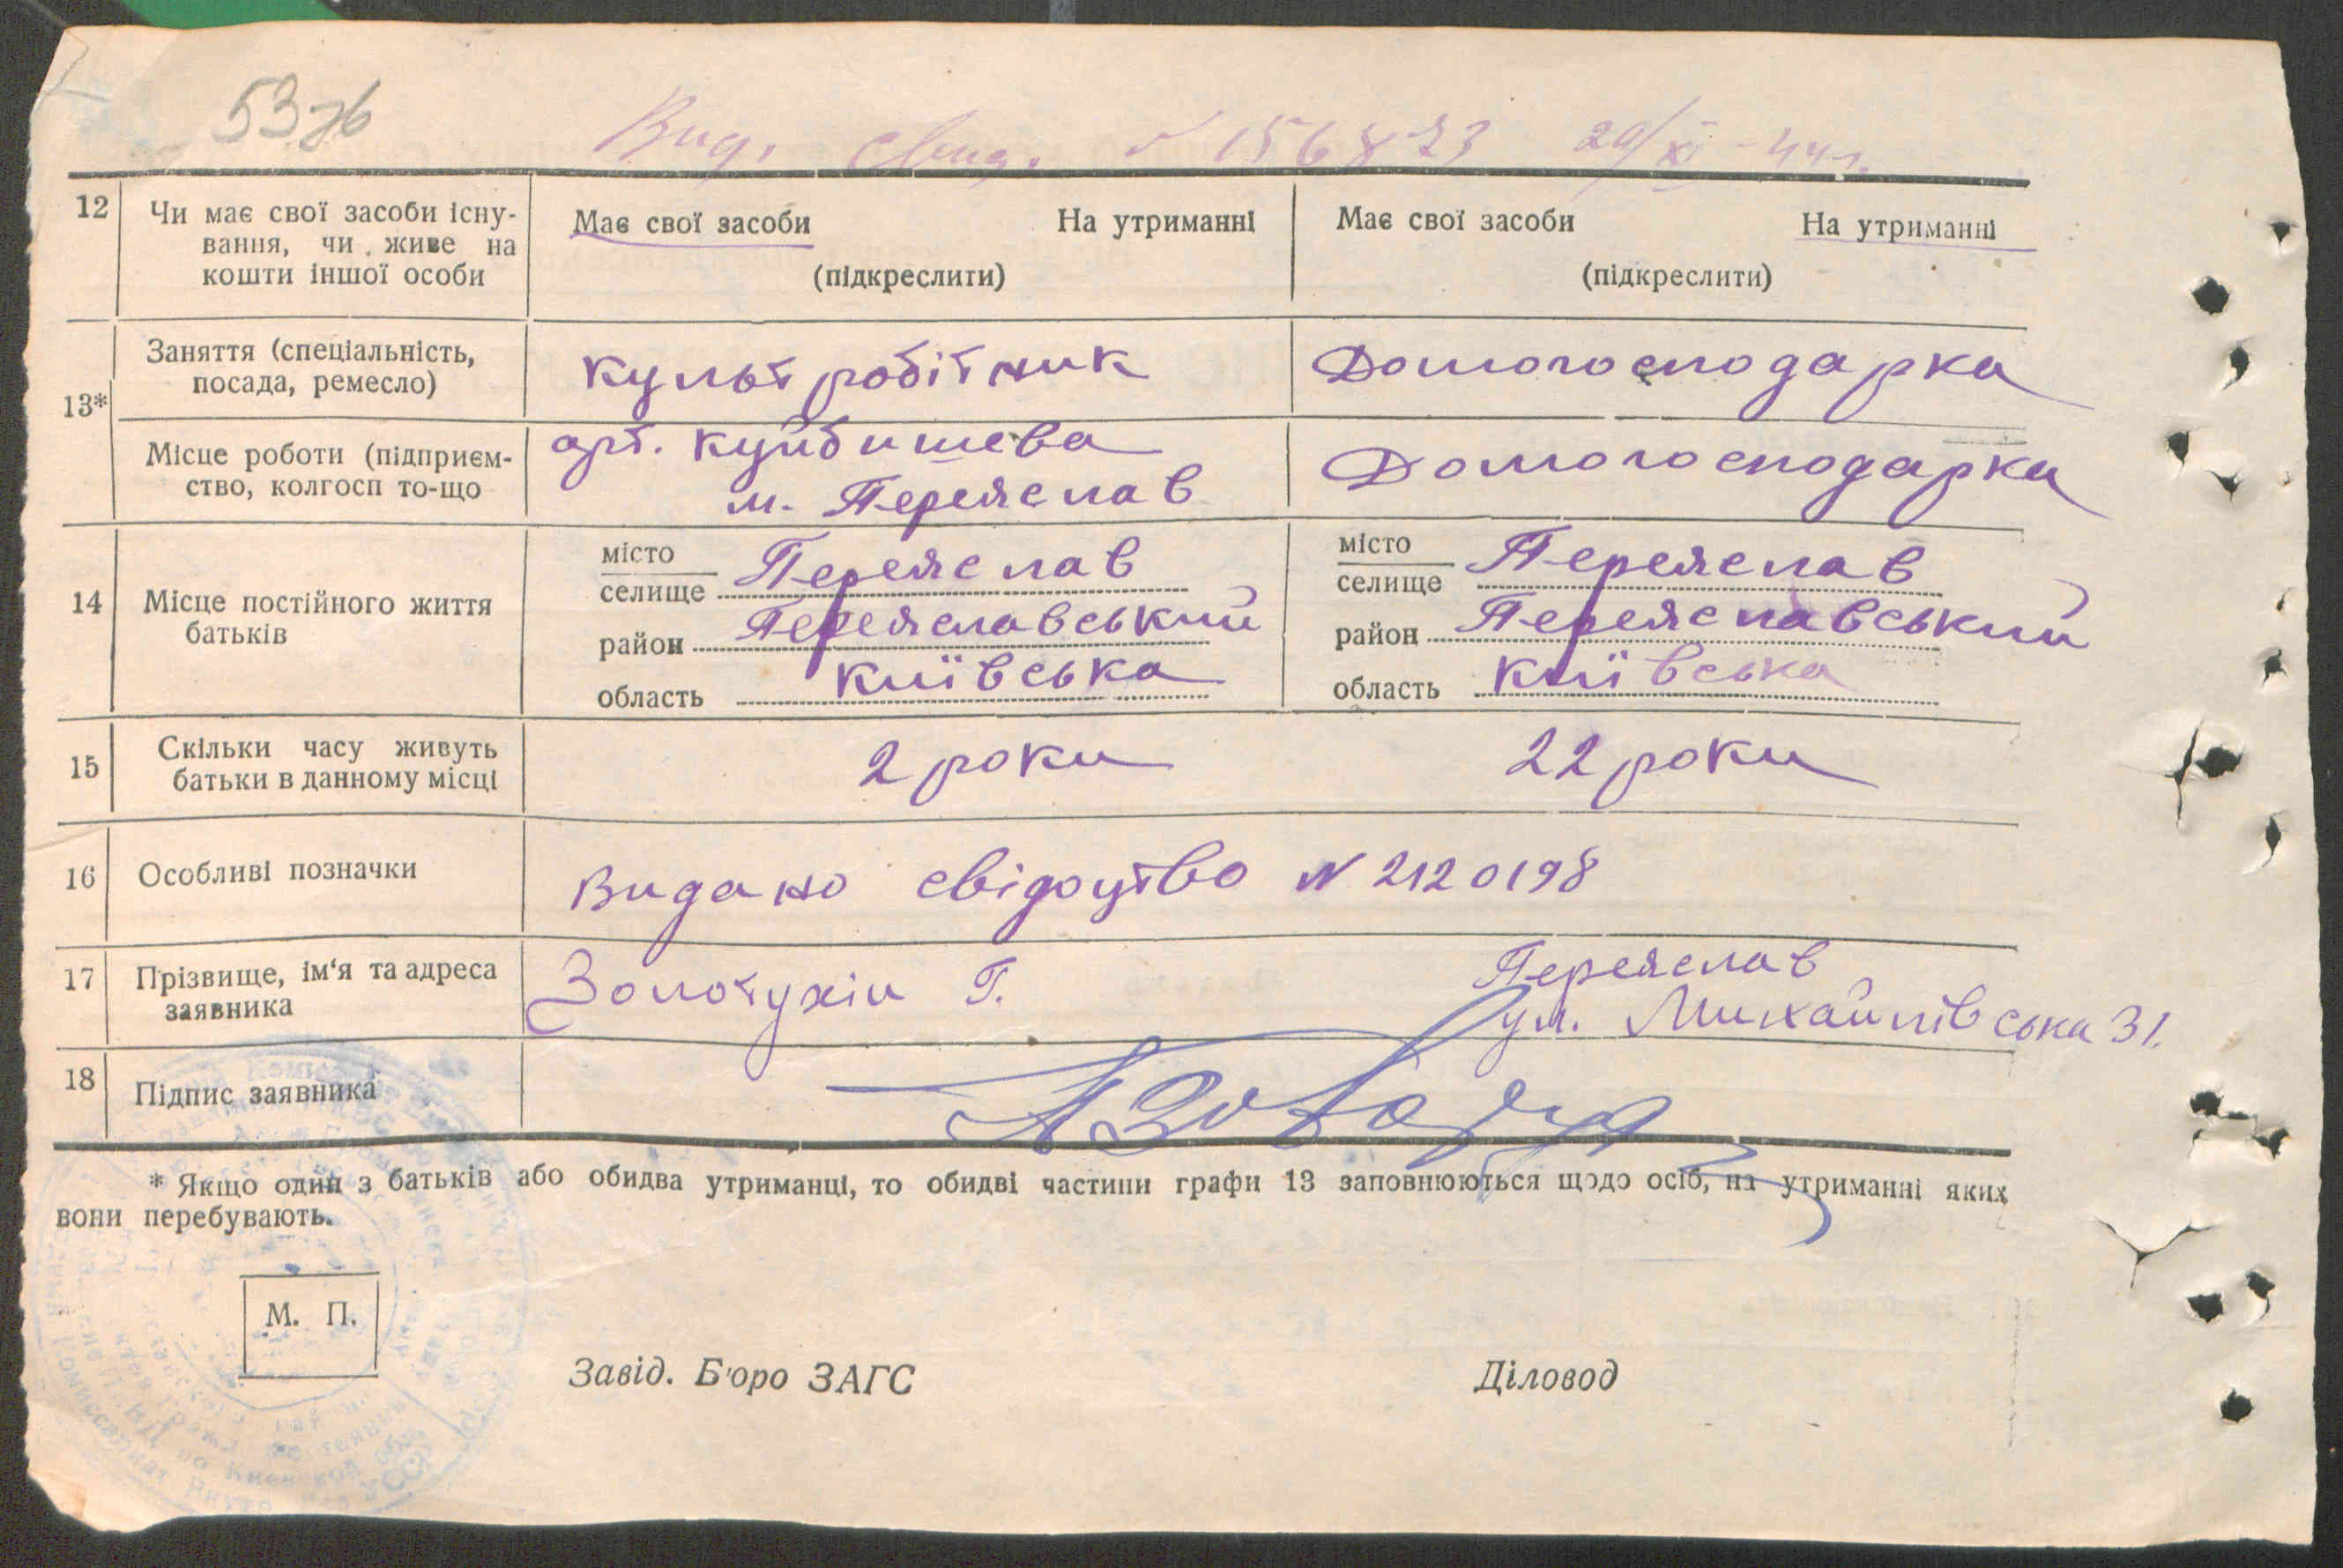 53 зв
Вид. свид. № 156873 29/XI-44 г.
12 Чи має свої засоби існу- Має свої засоби На утриманні Має свої засоби На утриманні
вання, чи живе на
кошти іншої особи (підкреслити) (підкреслити)
Заняття (спеціальність, культробітник Домогосподарка
посада, ремесло)
13*
Місце роботи (підприєм- арт. Куйбишева Домогосподарка
ство, колгосп то-що м. Переяслав
14 Місце постійного життя батьків
місто селище Переяслав місто селище Переяслав
район Переяславський район Переяславський
область Київська область Київська
15 Скільки часу живуть 2 роки 22 роки
батьки в данному місці
16 Особливі позначки Видано свідоцтво N 2120198
17 Прізвище, ім‘я та адреса Золотухін Г. Переяслав
заявника ул. Михайлівська 31.
18 Підпис заявника
* Якщо один з батьків або обидва утриманці, то обидві частини графи 13 заповнюються щодо осіб, на утриманні яких
вони перебувають.
М. П.
Завід. Б'юро ЗАГС Діловод